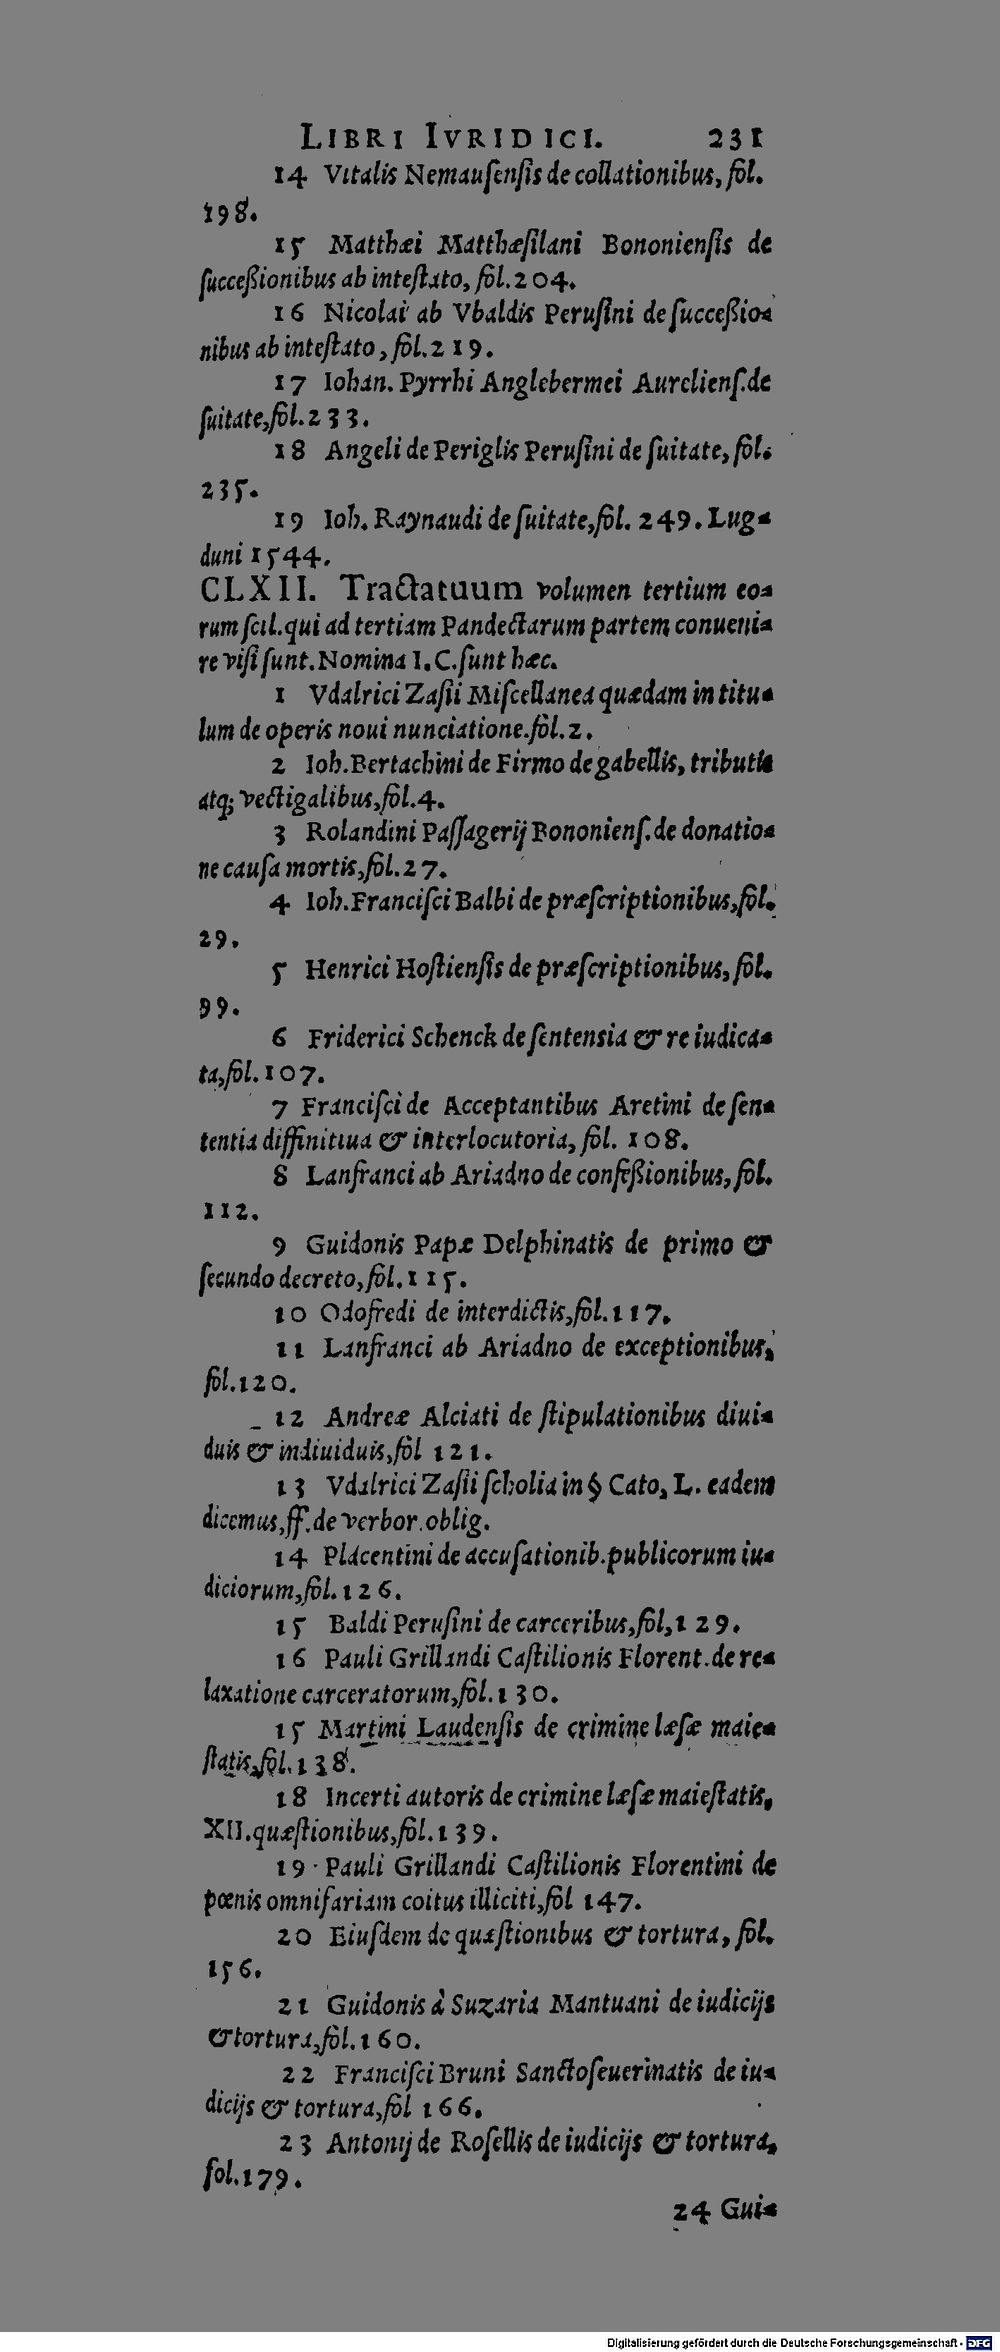 LIBRI IVRIDICI. 231
14 Vitalis Nemauſenſis de collationibus, fol.
198.
15 Matthæi Matthæſilani Bononienſis de
ſucceßionibus ab inteſtato, fol. 204.
16 Nicolai ab Vbaldis Peruſini de ſucceßio-
nibus ab inteſtato, fol. 219.
17 Iohan. Pyrrhi Anglebermei Aurelienſ. de
ſuitate, fol. 233.
18 Angeli de Periglis Peruſini de ſuitate, fol.
235.
19 Ioh. Raynaudi de ſuitate, fol. 249. Lug-
duni 1544.
CLXII. Tractatuum volumen tertium eo-
rum ſcil. qui ad tertiam Pandectarum partem conueni-
re viſi ſunt. Nomina I. C. ſunt hæc.
1 Vdalrici Zaſii Miſcellanea quædam in titu-
lum de operis noui nunciatione. fol. 2.
2 Ioh. Bertachini de Firmo de gabellis, tributis
atq; vectigalibus, fol. 4.
3 Rolandini Paſſagerij Bononienſ. de donatio-
ne cauſa mortis, fol. 27.
4 Ioh. Franciſci Balbi de præſcriptionibus, fol.
29.
5 Henrici Hoſtienſis de præſcriptionibus, fol.
99.
6 Friderici Schenck de ſentensia & re iudica-
ta, fol. 107.
7 Franciſci de Acceptantibus Aretini de ſen-
tentia diffinitiua & interlocutoria, fol. 108.
8 Lanfranci ab Ariadno de confeßionibus, fol.
112.
9 Guidonis Papæ Delphinatis de primo &
ſecundo decreto, fol. 115.
10 Odofredi de interdictis, fol. 117.
11 Lanfranci ab Ariadno de exceptionibus,
fol. 120.
12 Andreæ Alciati de ſtipulationibus diui-
duis & indiuiduis, fol 121.
13 Vdalrici Zaſii ſcholia in § Cato, L. eadem
dicemus, ff. de verbor. oblig.
14 Placentini de accuſationib. publicorum iu-
diciorum, fol. 126.
15 Baldi Peruſini de carceribus, fol, 129.
16 Pauli Grillandi Caſtilionis Florent. de re-
laxatione carceratorum, fol. 130.
15 Martini Laudenſis de crimine læſæ maie-
ſtatis, fol. 138.
18 Incerti autoris de crimine læſæ maieſtatis,
XII. quæſtionibus, fol. 139.
19 Pauli Grillandi Caſtilionis Florentini de
pœnis omnifariam coitus illiciti, fol 147.
20 Eiuſdem de quæſtionibus & tortura, fol.
156.
21 Guidonis à Suzaria Mantuani de iudicijs
& tortura, fol. 160.
22 Franciſci Bruni Sanctoſeuerinatis de iu-
dicijs & tortura, fol 166.
23 Antonij de Roſellis de iudicijs & tortura,
fol. 179.
24 Gui-
Digitalisierung gefördert durch die Deutsche Forschungsgemeinschaft - DFG